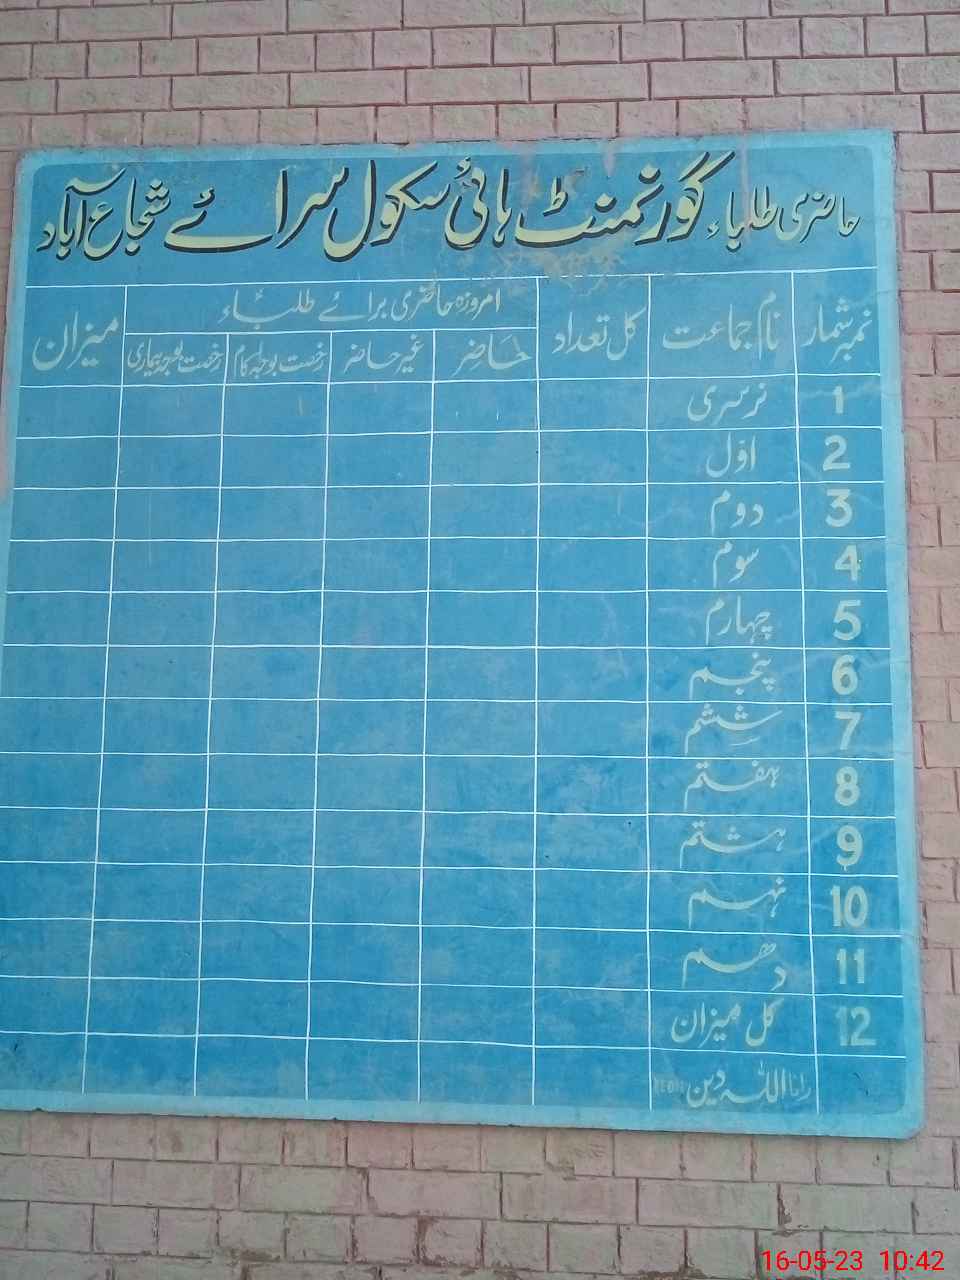 حاضری طلباء گورنمنٹ ہائی سکول سرائے شجاع آباد
نمبر شمار نام جماعت کل تعداد امروزہ حاضری برائے طلباء میزان
حاضر غیر حاضر رخصت بوجہ کام رخصت بوجہ بیماری
1 نرسری
2 اوّل
3 دوم
4 سوم
5 چہارم
6 پنجم
7 ششم
8 ہفتم
9 ہشتم
10 نہم
11 دھم
12 کل میزان
رانا اللہ دین
16-05-23 10:42